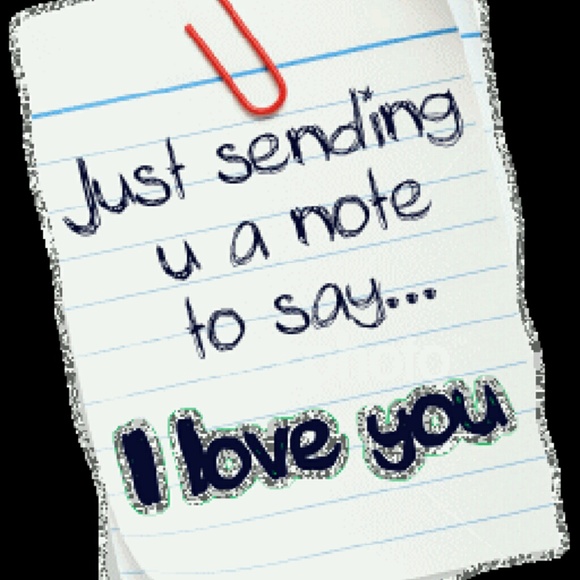 Just sending
u a note
to say...
I love you